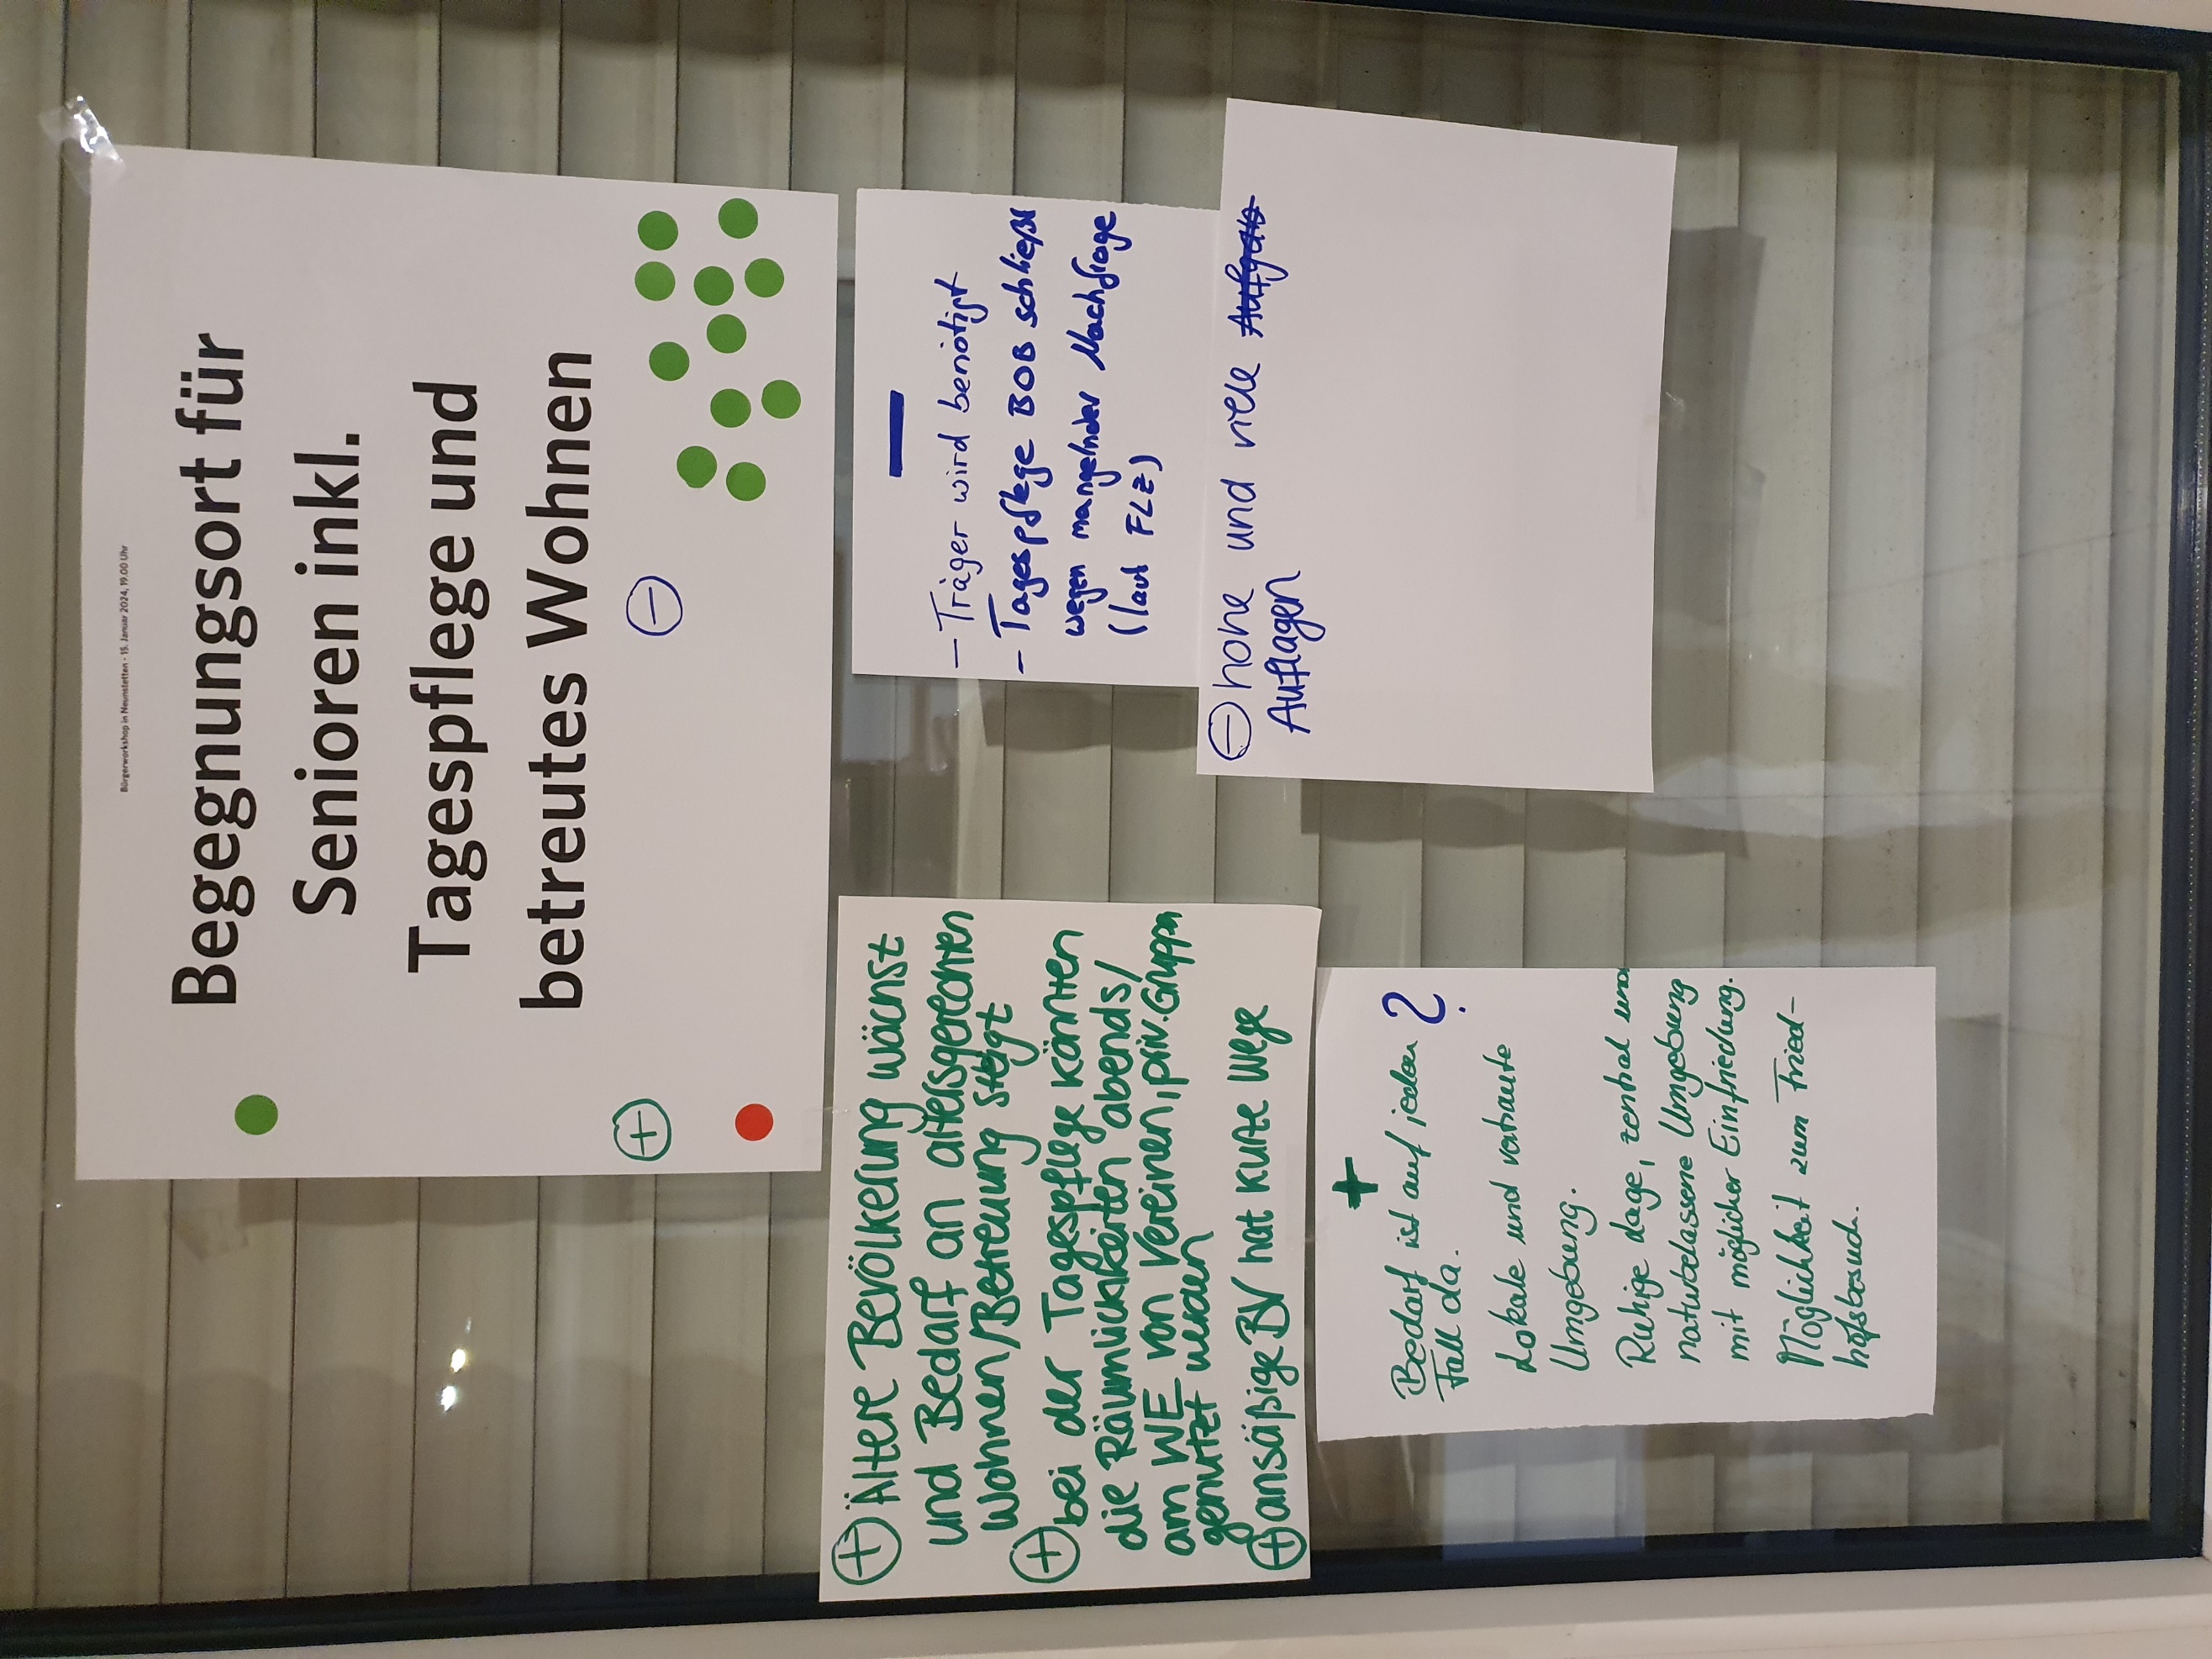 Bürgerworkshop in Neunstetten · 15. Januar 2024, 19.00 Uhr
Begegnungsort für
Senioren inkl.
Tagespflege und
betreutes Wohnen
+
-
+ Ältere Bevölkerung wächst
und Bedarf an altersgerechten
Wohnen/Betreuung steigt
+ bei der Tagespflege könnten
die Räumlichkeiten abends/
am WE von Vereinen, priv. Gruppen
genutzt werden
+ ansäßige BV hat kurze Wege
+
Bedarf ist auf jeden ?
Fall da.
Lokale und vertraute
Umgebung.
Ruhige Lage, zentral und
naturbelassene Umgebung
mit möglicher Einfriedung.
Möglichkeit zum Fried-
hofsbesuch.
-
- Träger wird benötigt
- Tagespflege BOB schließt
wegen mangelnder Nachfrage
(laut FLZ)
- hohe und viele
Auflagen